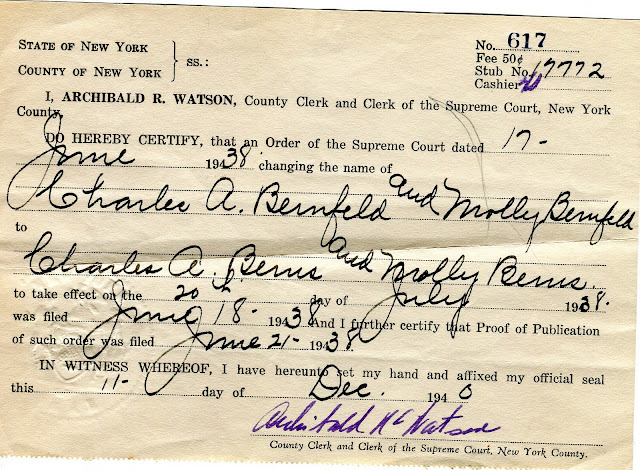 STATE OF NEW YORK
COUNTY OF NEW YORK
ss.:
No. 617
Fee 50¢
Stub No. 17772
Cashier
I, ARCHIBALD R. WATSON, County Clerk and Clerk of the Supreme Court, New York
County,
DO HEREBY CERTIFY, that an Order of the Supreme Court dated 17-
June 1938. changing the name of
Charles A. Bernfeld and Molly Bernfeld
to
Charles A. Berns and Molly Berns.
to take effect on the 20th day of July 1938.
was filed June 18- 1938 And I further certify that Proof of Publication
of such order was filed June 21- 1938.
IN WITNESS WHEREOF, I have hereunto set my hand and affixed my official seal
this 11- day of Dec. 1940
Archibald R. Watson
County Clerk and Clerk of the Supreme Court, New York County.